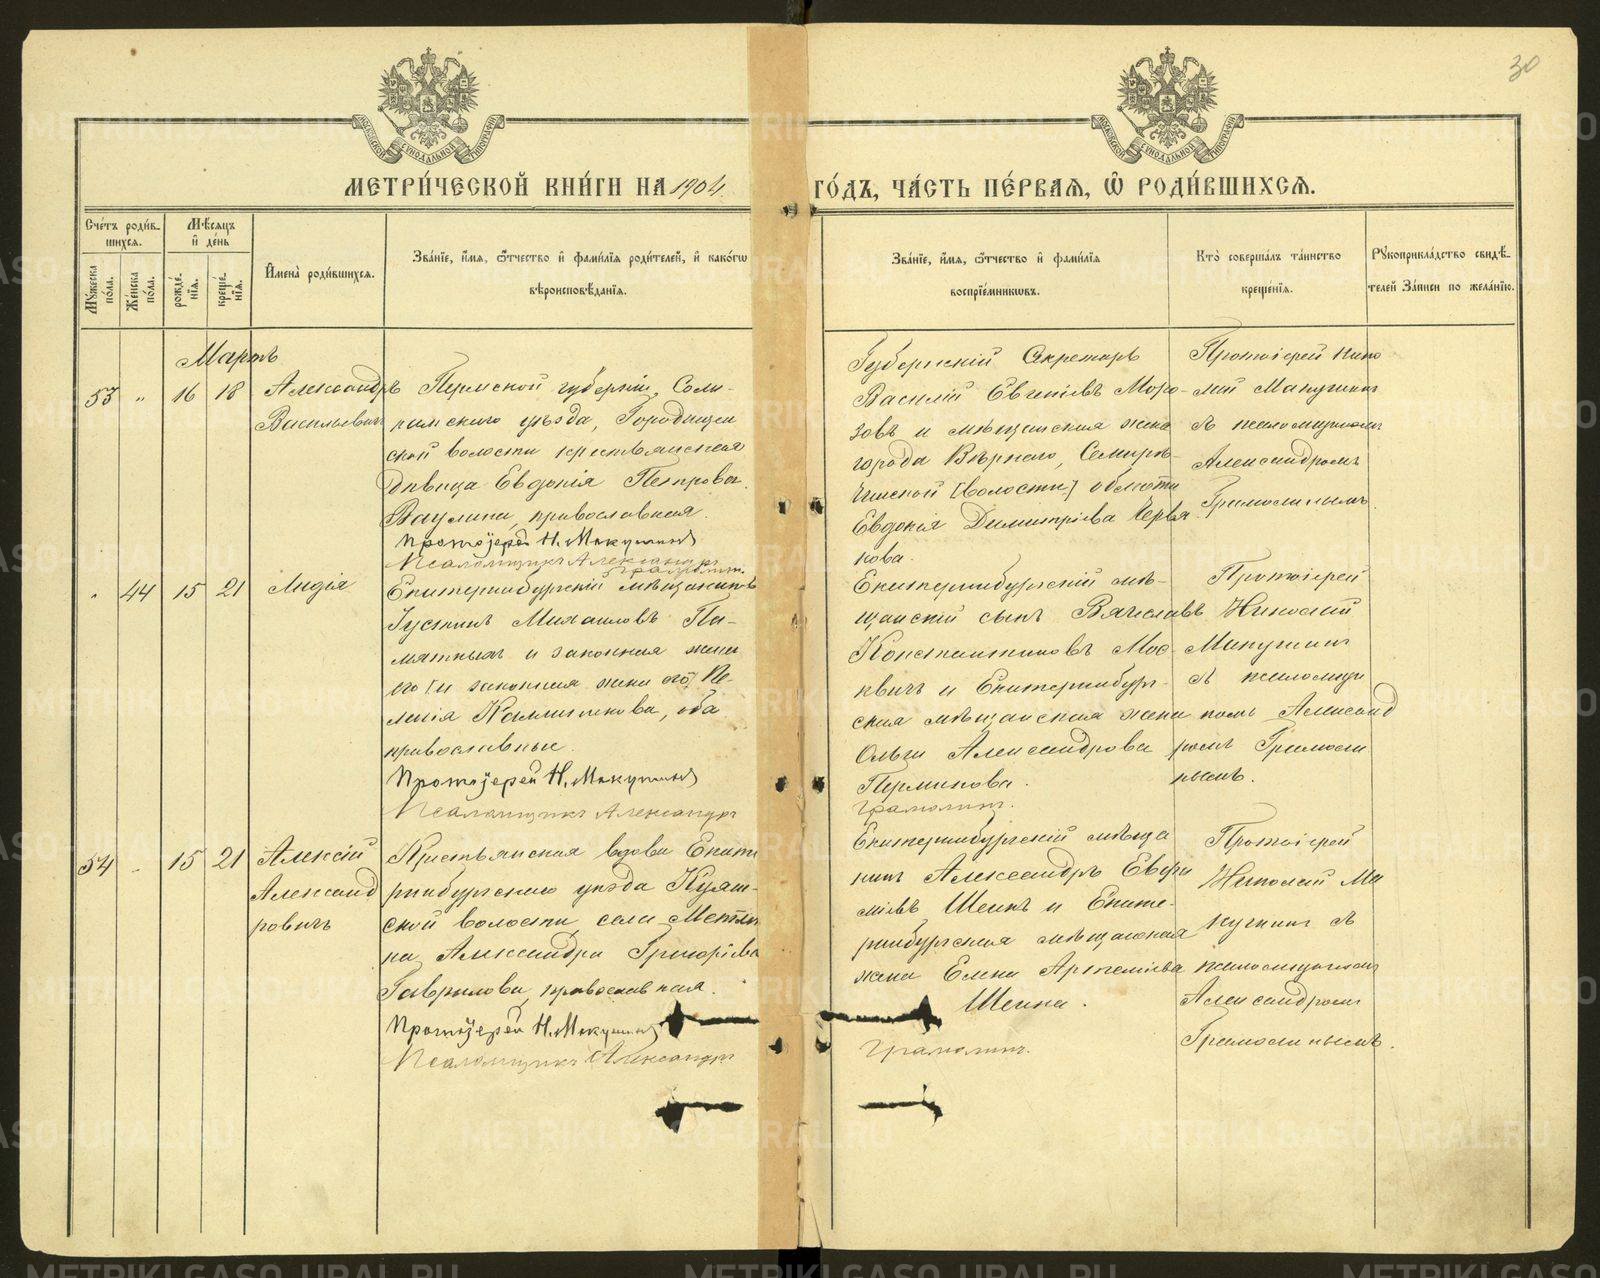 30
МОСКОВСКОЙ СѴНОДАЛЬНОЙ ТИПОГРАФІИ
МОСКОВСКОЙ СѴНОДАЛЬНОЙ ТИПОГРАФІИ
МЕТРИ́ЧЕСКОЙ КНИ́ГИ НА 1904 ГО́ДЪ, ЧА́СТЬ ПЕ́РВАЯ, Ѡ҆ РОДИ́ВШИХСЯ.
Сче́тъ роди́в-
шихся.
Мѣ́сяцъ
и҆ де́нь
Му́жеска
по́ла.
Же́нска
по́ла.
рожде́-
нїя.
креще́-
нїя.
И҆мена̀ роди́вшихся.
Зва́нїе, и҆́мя, ѻ҆́тчество и҆ фами́лїя роди́телей, и҆ како́гѡ
вѣроисповѣ́данїя.
Зва́нїе, и҆́мя, ѻ҆́тчество и҆ фами́лїя
воспрїе́мникѡвъ.
Кто̀ соверша́лъ та́инство
креще́нїя.
Рꙋкоприкла́дство свидѣ́-
телей За́писи по жела́нїю.
Мартъ
53 " 16 18
Александръ
Васильевичъ
Пермской губерніи, Соли-
камскаго уѣзда, Городищен
ской волости крестьянская
дѣвица Евдокія Петрова
Ваулина, православная.
Протоіерей Н. Макушинъ
Псаломщикъ Александръ
Грамолин.
Губернскій Секретарь
Василій Евгеніевъ Моро-
зовъ и мѣщанская жена
города Вѣрнаго, Семирѣ-
чинской [волости] области
Евдокія Димитріева Червя
кова.
Протоіерей Нико
лай Макушинъ
съ псаломщикомъ
Александромъ
Грамолинымъ.
" 44 15 21
Лидія
Екатеринбургскій мѣщанинъ
Іустинъ Михаиловъ Па-
мятныхъ и законная жена
его [и законная жена его] Пе-
лагія Каллиникова, оба
православные.
Протоіерей Н. Макушинъ
Псаломщикъ Александръ
Грамолин.
Екатеринбургскій мѣ-
щанскій сынъ Вячеславъ
Константиновъ Мос-
квинъ и Екатеринбург-
ская мѣщанская жена
Ольга Александрова
Перминова.
Протоіерей
Николай
Макушинъ
съ псаломщи
комъ Александ
ромъ Грамоли
нымъ.
54 " 15 21
Алексій
Александ
ровичъ
Крестьянская вдова Екате
ринбургскаго уѣзда Куяш-
ской волости, села Метлин
ка, Александра Григоріева
Гаврилова, православная.
Протоіерей Н. Макушинъ
Псаломщикъ Александръ
Грамолин.
Екатеринбургскій мѣща
нинъ Александръ Евфи
міевъ Шеинъ и Екате-
ринбургская мѣщанская
жена Елена Артеміева
Шеина.
Протоіерей
Николай Ма
кушинъ съ
псаломщикомъ
Александромъ
Грамолинымъ.